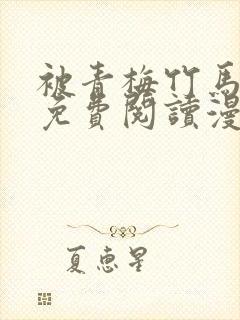 被青梅竹馬
免費閱讀漫
夏惠星